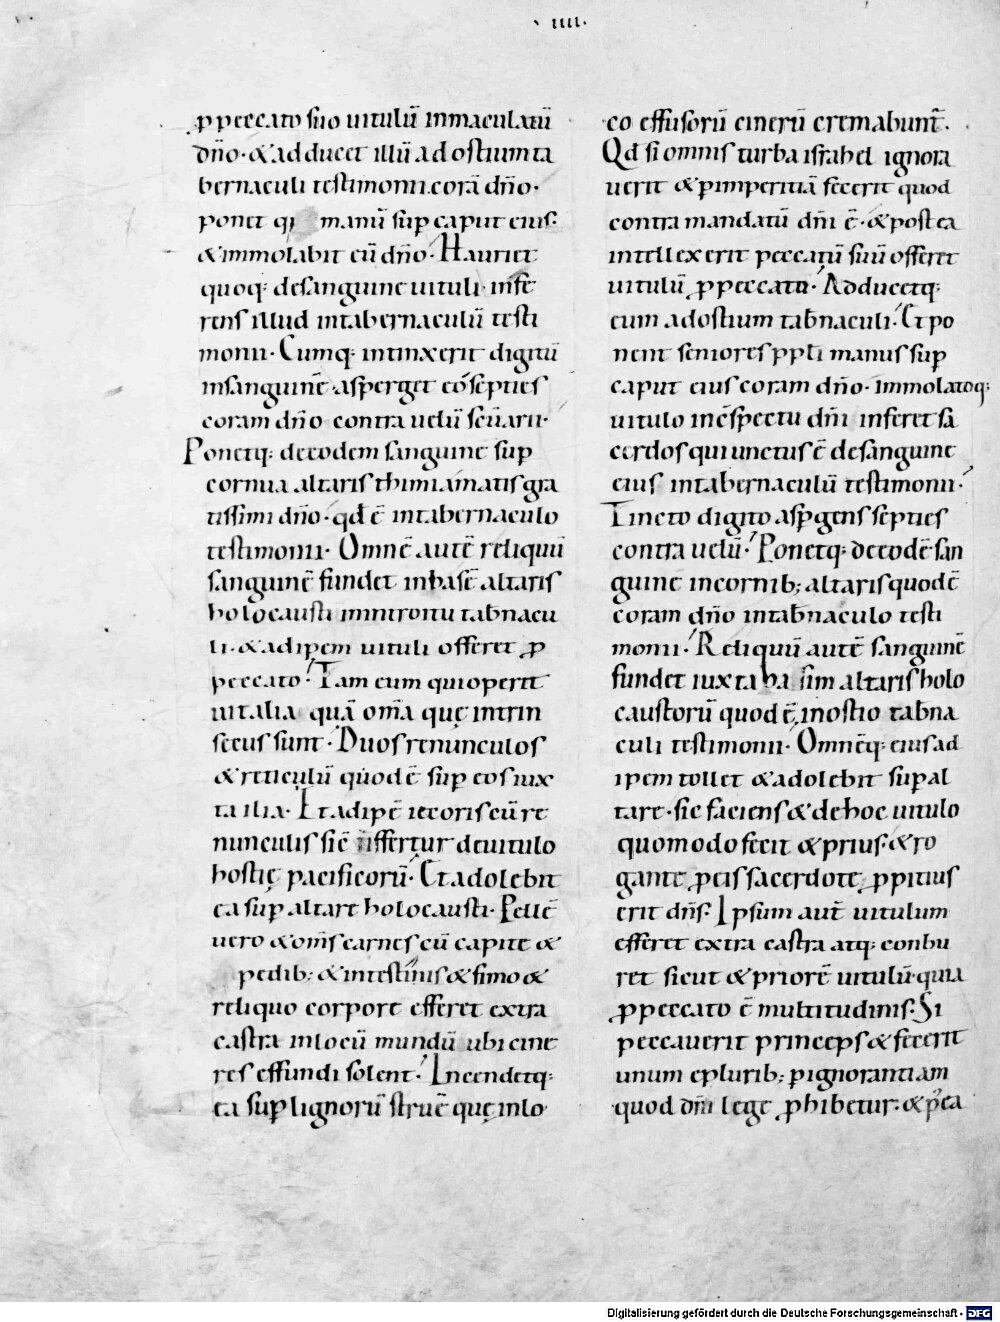 · IIII·
ꝓ peccato suo uitulū inmaculatū
dn̄o· & adducet illū ad ostium ta
bernaculi testimonii corā dn̄o·
ponet manū suꝑ caput eius·
& immolabit eū dn̄o· Hauriet
quoq; de sanguine uituli· infe
rens illud in tabernaculū testi
monii· Cumq; intinxerit digitū
in sanguinē asperget eo septies
coram dn̄o contra uelū sc̄uarii·
Ponetq; de eodem sanguine suꝑ
cornua altaris thimiamatis gra
tissimi dn̄o· qd̄ ē in tabernaculo
testimonii· Omnē autē reliquū
sanguinē fundet in basē altaris
holocausti in introitu tab̄nacu
li· & adipem uituli offeret ꝓ
peccato· Tam eum qui operit
uitalia quā om̄a quę intrin
secus sunt· Duos renunculos
& reticulū quod ē suꝑ eos iux
ta ilia· Et adipē iecoris cū re
nunculis sic̄ offertur de uitulo
hostię pacificorū· Et adolebit
ea suꝑ altare holocausti· Pellē
uero & om̄s carnes cū capite &
pedib; & intestinis & fimo &
reliquo corpore efferet extra
castra in locū mundū ubi cine
res effundi solent· Incendetq;
ea suꝑ lignorū struē quę in lo
co effusorū cinerū cremabunt̄·
Qd̄ si omnis turba israhel ignora
uerit & ꝑ imperitiā fecerit quod
contra mandatū dn̄i ē· & postea
intellexerit peccatū suū offeret
uitulū ꝓ peccato· Adducetq;
eum ad ostium tab̄naculi· Et po
nent seniores pp̄li manus suꝑ
caput eius coram dn̄o· immolatoq;
uitulo in c̄spectu dn̄i inferet sa
cerdos qui unctus ē de sanguine
eius in tabernaculū testimonii·
Tincto digito aspꝑgens septies
contra uelū· Ponetq; de eodē san
guine in cornib; altaris quod ē
coram dn̄o in tab̄naculo testi
monii· Reliquū autē sanguinē
fundet iuxta basim altaris holo
caustorū quod ē in ostio tab̄na
culi testimonii· Omnēq; eius ad
ipem tollet & adolebit suꝑ al
tare· sic faciens & de hoc uitulo
quomodo fecit & prius· & ro
gante ꝓ eis sacerdote ꝓpitius
erit dn̄s· Ipsum aut̄ uitulum
efferet extra castra atq; conbu
ret sicut & priorē uitulū· quia
ꝓ peccato ē multitudinis· Si
peccauerit princeps & fecerit
unum e plurib; ꝑ ignorantiam
quod dn̄i lege ꝓhibetur· & p̄ea
Digitalisierung gefördert durch die Deutsche Forschungsgemeinschaft - DFG